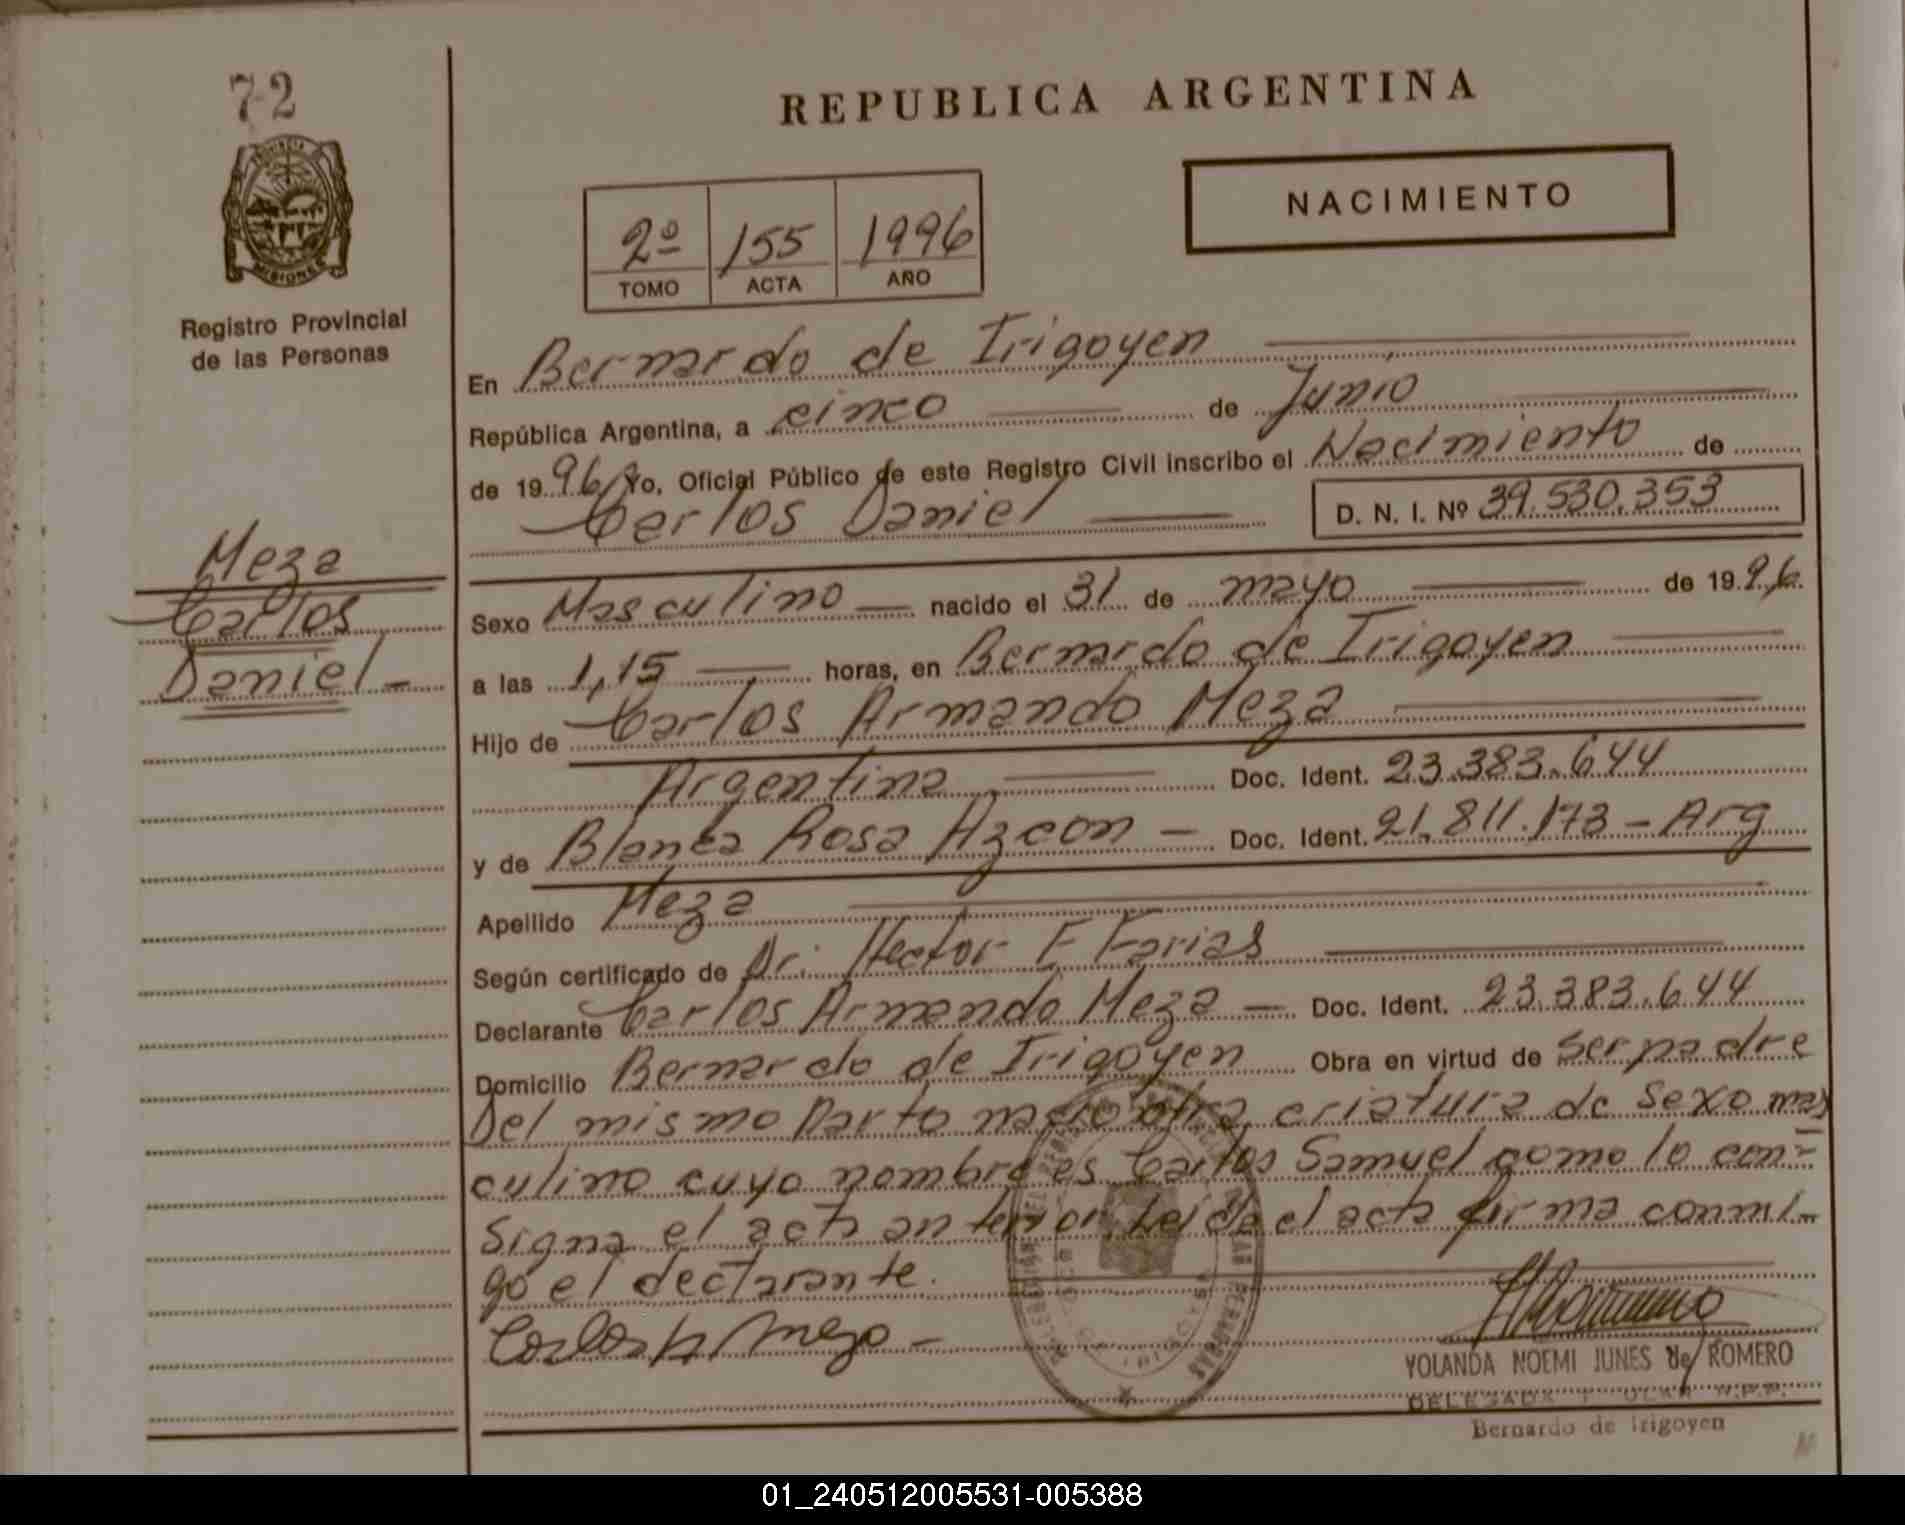 72
PROVINCIA
MISIONES
Registro Provincial
de las Personas
Meza
Carlos
Daniel -
REPUBLICA ARGENTINA
NACIMIENTO
2º 155 1996
TOMO ACTA AÑO
En Bernardo de Irigoyen
República Argentina, a cinco de Junio
de 1996 Yo, Oficial Público de este Registro Civil inscribo el Nacimiento de
Carlos Daniel D. N. I. Nº 39.530.353
Sexo Masculino nacido el 31 de mayo de 1996
a las 1,15 horas, en Bernardo de Irigoyen
Hijo de Carlos Armando Meza
Argentina Doc. Ident. 23.383.644
y de Blanca Rosa Azcon - Doc. Ident. 21.811.173 - Arg
Apellido Meza
Según certificado de Dr. Hector F Farias
Declarante Carlos Armando Meza - Doc. Ident. 23.383.644
Domicilio Bernardo de Irigoyen Obra en virtud de ser padre
Del mismo parto nació otra criatura de sexo mas
culino cuyo nombre es Carlos Samuel como lo con-
signa el acta anterior, Leída el acta firma conmi-
go el declarante.
Carlos A Meza -
YOLANDA NOEMI JUNES de ROMERO
DELEGADA
Bernardo de Irigoyen
01_240512005531-005388